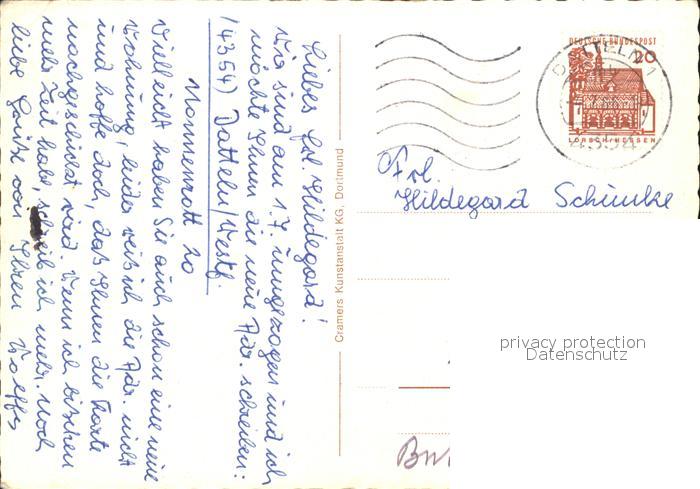 Liebes Frl. Hildegard!
Wir sind am 1.7. umgezogen und ich
möchte Ihnen die neue Adr. schreiben:
(4354) Datteln/Westf.
Nonnenrott 20
Vielleicht haben Sie auch schon eine neue
Wohnung, leider weiß ich die Adr. nicht
und hoffe doch, daß Ihnen die Karte
nachgeschickt wird. Wenn ich bischen
mehr Zeit habe, schreib ich mehr. Noch
liebe Grüße von Ihren
Cramers Kunstanstalt KG, Dortmund
DEUTSCHE BUNDESPOST
20
LORSCH/HESSEN
DATTELN 1
4354
Frl.
Hildegard Schimke
privacy protection
Datenschutz